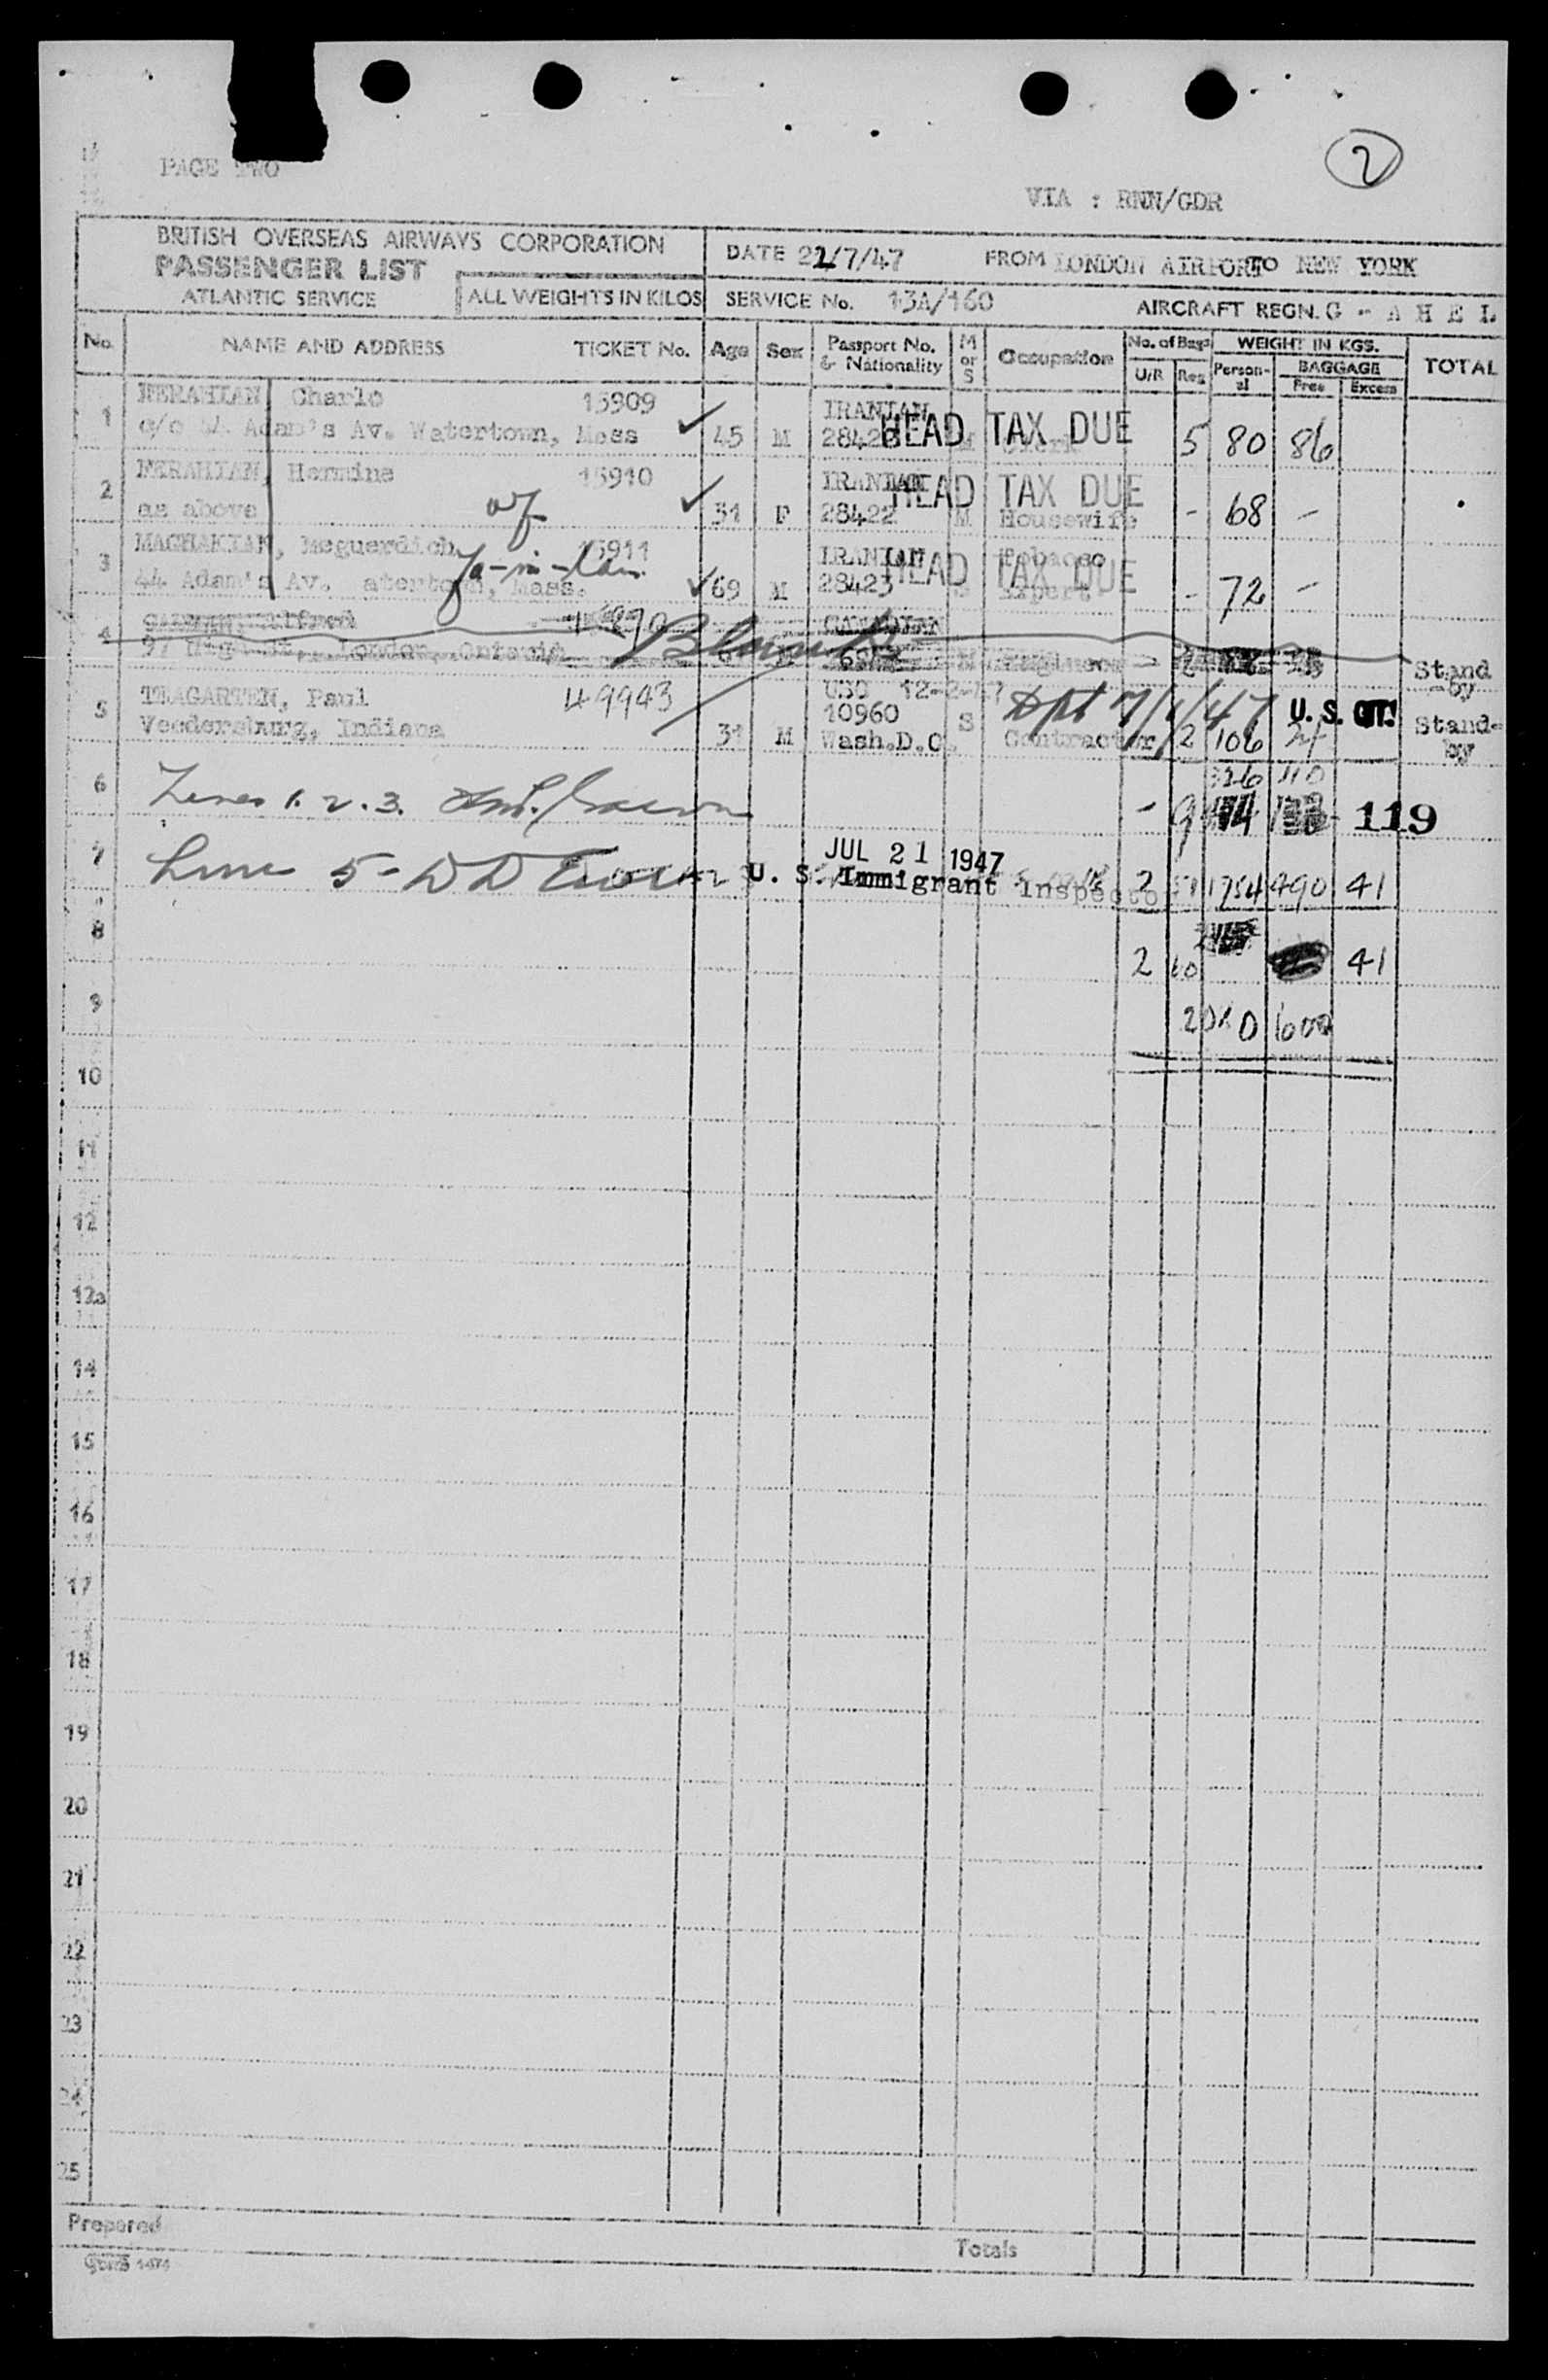 PAGE TWO
2
VIA : RNN/GDR
BRITISH OVERSEAS AIRWAYS CORPORATION
PASSENGER LIST
ATLANTIC SERVICE
ALL WEIGHTS IN KILOS
DATE 21/7/47 FROM LONDON AIRPORT TO NEW YORK
SERVICE No. 13A/160 AIRCRAFT REGN. G - A H E L
No. NAME AND ADDRESS TICKET No. Age Sex Passport No. & Nationality M or S Occupation No. of Bags U/R Reg WEIGHT IN KGS. Personal BAGGAGE Free Excess TOTAL
1 NERAHIAN Charlo 15909 IRANIAN
c/o 44 Adam's Av. Watertown, Mass 45 M HEAD TAX DUE 5 80 86
2 NERAHIAN, Hermine 15910 IRANIAN
as above wf 31 F 28422 M Housewife HEAD TAX DUE - 68 -
3 MAGHAKIAN, Meguerdich 15911 IRANIAN Tobacco
44 Adam's Av. atertown, Mass. Fa-in-law 69 M 28423 S Expert HEAD TAX DUE - 72 -
4 Alfred CANADIAN
London, Ontario Blank Stand -by
5 TEAGARTEN, Paul 49943 USO 12-2-47
Veedersburg, Indiana 31 M 10960 Wash.D.C. S Contractor Dpt 7/1/47 2 106 24 U. S. CIT. Stand-by
326 110
6 Lines 1. 2. 3. - 9 119
7 Line 5 - JUL 21 1947
U. S. Immigrant Inspector 2 1754 490 41
8 2 60 41
9 600
10
11
12
12a
14
15
16
17
18
19
20
21
22
23
24
25
Prepared
Totals